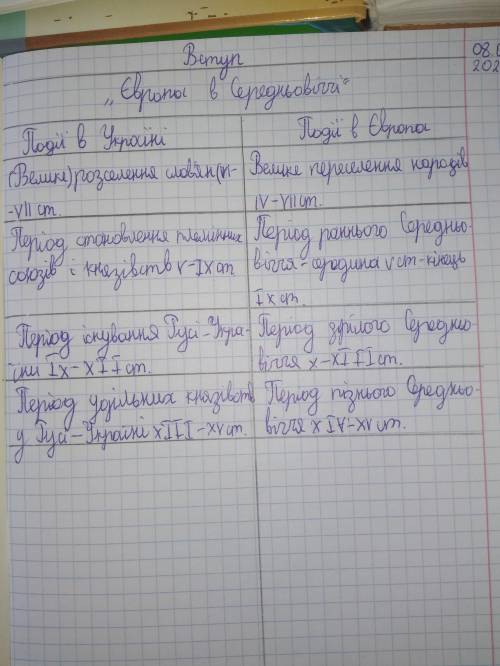 Вступ
08.
202
„Європа в Середньовіччі"
Події в Україні
Події в Європа
(Велике) розселення слов'ян (VI-
-VII ст.
Велике переселення народів
IV-VII ст.
Період становлення племінних
союзів і князівств V-IX ст
Період раннього Середньо-
віччя - середина V ст - кінець
IX ст.
Період існування Русі-Укра-
їни IX-XII ст.
Період зрілого Середньо-
віччя X-XIII ст.
Період удільних князівств
у Русі-Україні XIII-XV ст.
Період пізнього Середньо-
віччя XIV-XV ст.